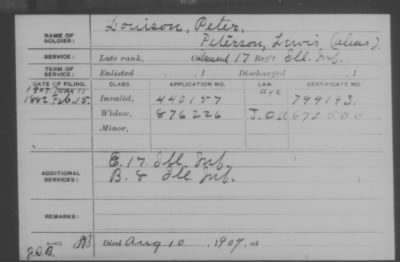 Louison, Peter.
NAME OF SOLDIER: Peterson, Lewis (alias)
SERVICE: Late rank, 17 Reg't Ill. Inf.
TERM OF SERVICE: Enlisted , 1 Discharged , 1
DATE OF FILING. CLASS. APPLICATION NO. LAW. CERTIFICATE NO.
1907
1882 Feb. 15. Invalid, 440157 799193.
Widow, 876226
Minor,
E. 17 Ill. Inf.
ADDITIONAL SERVICES: B. 8 Ill. Inf.
REMARKS:
Died Aug 10, 1907, at